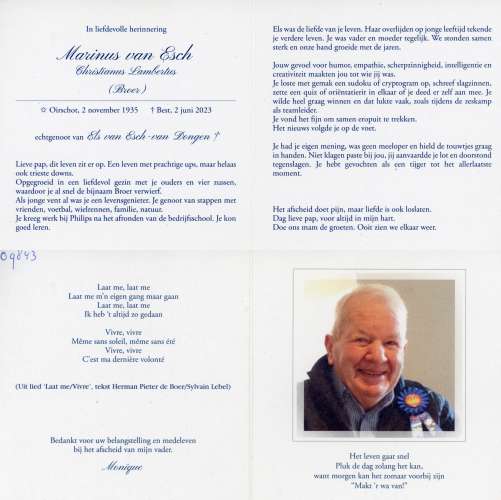 In liefdevolle herinnering
Marinus van Esch
Christianus Lambertus
(Broer)
✩ Oirschot, 2 november 1935 † Best, 2 juni 2023
echtgenoot van Els van Esch-van Dongen †
Lieve pap, dit leven zit er op. Een leven met prachtige ups, maar helaas
ook trieste downs.
Opgegroeid in een liefdevol gezin met je ouders en vier zussen,
waardoor je al snel de bijnaam Broer verwierf.
Als jonge vent al was je een levensgenieter. Je genoot van stappen met
vrienden, voetbal, wielrennen, familie, natuur.
Je kreeg werk bij Philips na het afronden van de bedrijfsschool. Je kon
goed leren.
Els was de liefde van je leven. Haar overlijden op jonge leeftijd tekende
je verdere leven. Je was vader en moeder tegelijk. We stonden samen
sterk en onze band groeide met de jaren.
Jouw gevoel voor humor, empathie, scherpzinnigheid, intelligentie en
creativiteit maakten jou tot wie jij was.
Je loste met gemak een sudoku of cryptogram op, schreef slagzinnen,
zette een quiz of oriëntatierit in elkaar of je deed er zelf aan mee. Je
wilde heel graag winnen en dat lukte vaak, zoals tijdens de zeskamp
als teamleider.
Je vond het fijn om samen eropuit te trekken.
Het nieuws volgde je op de voet.
Je had je eigen mening, was geen meeloper en hield de touwtjes graag
in handen. Nier klagen paste bij jou, jij aanvaardde je lot en doorstond
tegenslagen. Je hebt gevochten als een tijger tot het allerlaatste
moment.
Het afscheid doet pijn, maar liefde is ook loslaten.
Dag lieve pap, voor altijd in mijn hart.
Doe ons mam de groeten. Ooit zien we elkaar weer.
09843
Laat me, laat me
Laat me m'n eigen gang maar gaan
Laat me, laat me
Ik heb 't altijd zo gedaan
Vivre, vivre
Même sans soleil, même sans été
Vivre, vivre
C'est ma dernière volonté
(Uit lied 'Laat me/Vivre', tekst Herman Pieter de Boer/Sylvain Lebel)
Bedankt voor uw belangstelling en medeleven
bij het afscheid van mijn vader.
Monique
Het leven gaat snel
Pluk de dag zolang het kan,
want morgen kan het zomaar voorbij zijn
"Makt 'r wa van!"